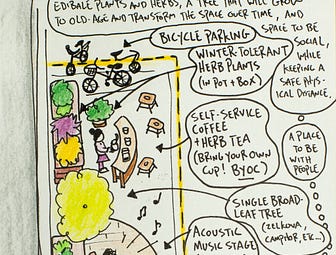 EDIBALE PLANTS AND HERBS, A TREE THAT WILL GROW
TO OLD-AGE AND TRANSFORM THE SPACE OVER TIME, AND
BICYCLE PARKING
SPACE TO BE
SOCIAL,
WHILE
KEEPING A
SAFE PHYS-
ICAL DISTANCE.
WINTER-TOLERANT
HERB PLANTS
(IN POT + BOX)
SELF-SERVICE
COFFEE
+ HERB TEA
(BRING YOUR OWN
CUP! BYOC)
A PLACE
TO BE
WITH
PEOPLE
SINGLE BROAD-
LEAF TREE
(ZELKOVA,
CAMPHOR, ETC...)
ACOUSTIC
MUSIC STAGE